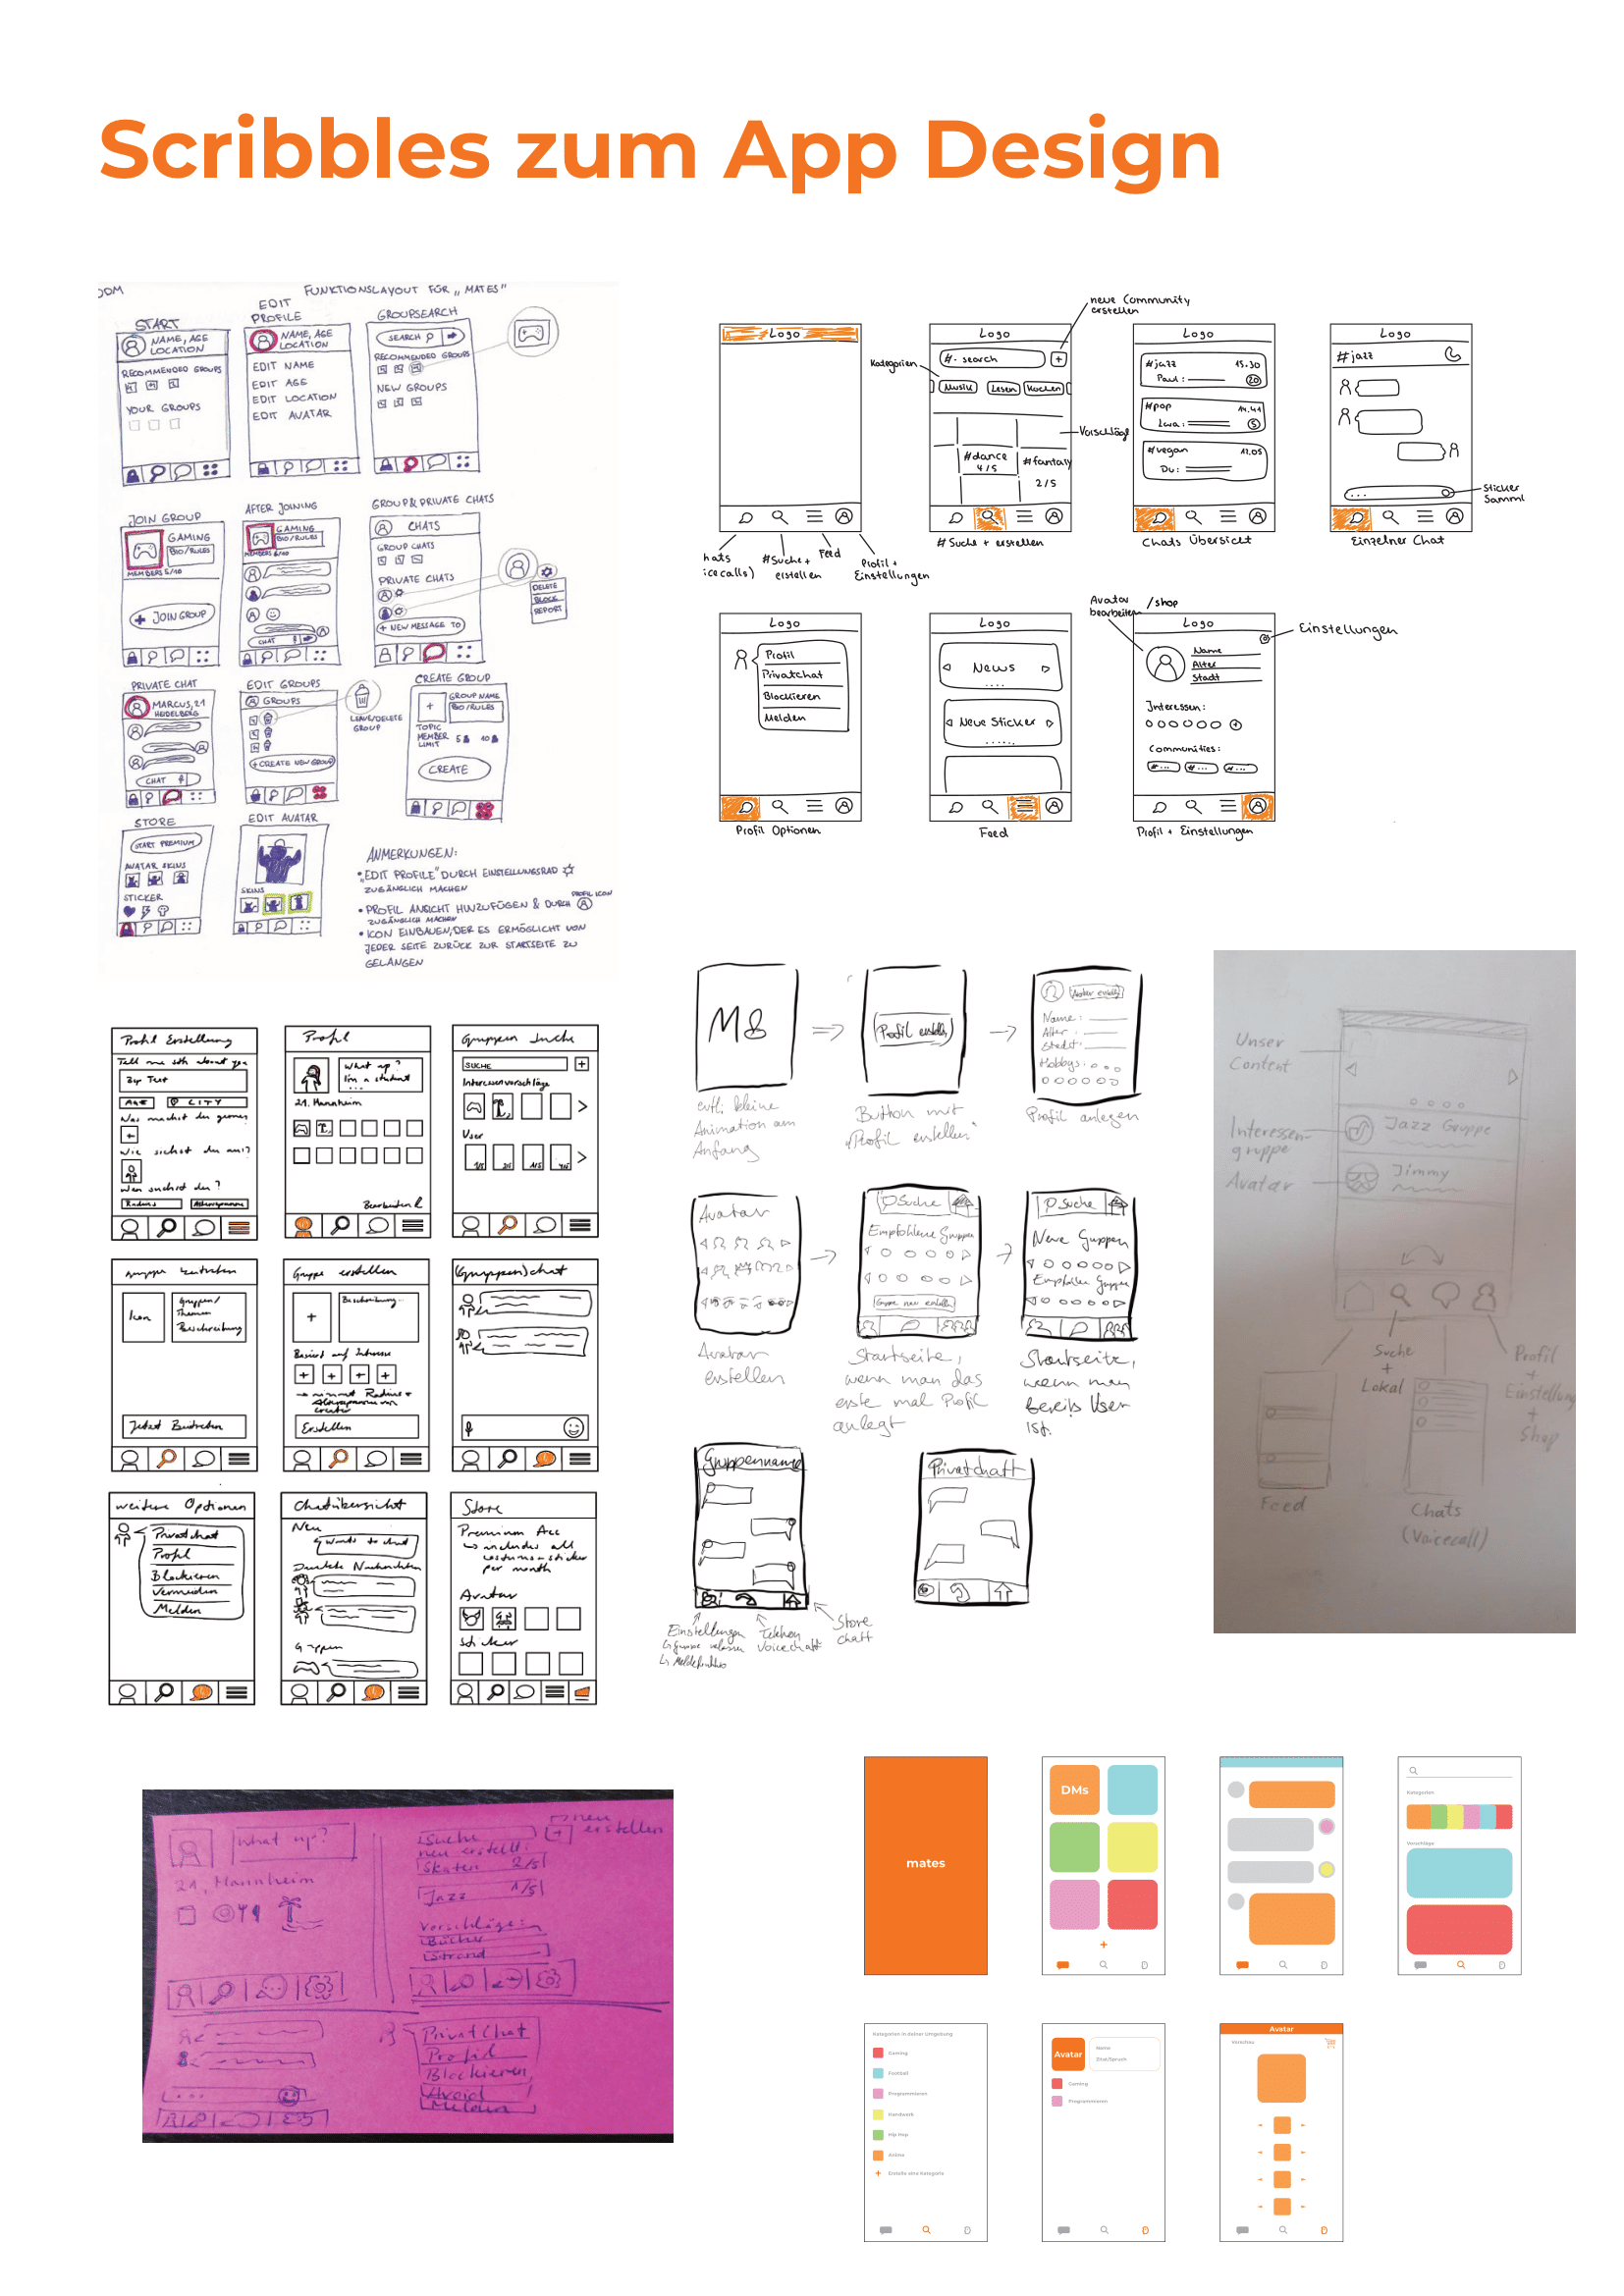 Scribbles zum App Design
FUNKTIONSLAYOUT FÜR „MATES"
START
NAME, AGE
LOCATION
RECOMMENDED GROUPS
YOUR GROUPS
EDIT
PROFILE
NAME, AGE
LOCATION
EDIT NAME
EDIT AGE
EDIT LOCATION
EDIT AVATAR
GROUPSEARCH
SEARCH
RECOMMENDED GROUPS
NEW GROUPS
JOIN GROUP
GAMING
BIO/RULES
MEMBERS 5/10
+ JOIN GROUP
AFTER JOINING
GAMING
BIO/RULES
MEMBERS 6/10
CHAT
GROUP & PRIVATE CHATS
CHATS
GROUP CHATS
PRIVATE CHATS
+ NEW MESSAGE TO
DELETE
BLOCK
REPORT
PRIVATE CHAT
MARCUS, 21
HEIDELBERG
CHAT
EDIT GROUPS
GROUPS
+ CREATE NEW GROUP
LEAVE/DELETE
GROUP
CREATE GROUP
+
GROUP NAME
BIO/RULES
TOPIC
MEMBER
LIMIT
5
10
CREATE
STORE
START PREMIUM
AVATAR SKINS
STICKER
EDIT AVATAR
SKINS
ANMERKUNGEN:
• „EDIT PROFILE" DURCH EINSTELLUNGSRAD
ZUGÄNGLICH MACHEN
• PROFIL ANSICHT HINZUFÜGEN & DURCH
PROFIL ICON
ZUGÄNGLICH MACHEN
• ICON EINBAUEN, DER ES ERMÖGLICHT VON
JEDER SEITE ZURÜCK ZUR STARTSEITE ZU
GELANGEN
Logo
hats
icecalls)
#Suche +
erstellen
Feed
Profil +
Einstellungen
neue Community
erstellen
Logo
#. search
+
Kategorien
Musik
Lesen
Kochen
Vorschläge
#dance
4/5
#fantasy
2/5
# Suche + erstellen
Logo
#jazz
15.30
Paul:
20
#pop
14.41
Lwa:
5
#vegan
11.05
Du:
Chats Übersicht
Logo
#jazz
...
Sticker
Samml
Einzelner Chat
Logo
Profil
Privatchat
Blockieren
Melden
Profil Optionen
Logo
News
Neue Sticker
Feed
Avatar
bearbeiten
/shop
Logo
Einstellungen
Name
Alter
Stadt
Interessen:
Communities:
#...
#...
#...
Profil + Einstellungen
Profil Erstellung
Tell me sth about you
Bsp Text
AGE
CITY
Was machst du gerne?
+
Wie siehst du aus?
Wen suchst du?
Radius
Altersspanne
Profil
What up?
I'm a student
...
21, Mannheim
Bearbeiten
Gruppen Suche
SUCHE
+
Interessenvorschläge
User
1/5
2/5
1/5
4/5
Gruppe beitreten
Icon
Gruppen/
Themen
Beschreibung
Jetzt Beitreten
Gruppe erstellen
+
Beschreibung...
Basiert auf Interesse
+ + + +
→ nimmt Radius +
Altersspanne von
creator
Erstellen
(Gruppen)chat
weitere Optionen
Privatchat
Profil
Blockieren
Vermeiden
Melden
Chatübersicht
Neu
wants to chat
Direkte Nachrichten
Gruppen
Store
Premium Acc
↳ includes all
costums + sticker
per month
Avatar
Sticker
M8
evtl. kleine
Animation am
Anfang
Profil erstellen
Button mit
„Profil erstellen"
Avatar erstellen
Name:
Alter:
Stadt:
Hobbys:
Profil anlegen
Avatar
Avatar
erstellen
Suche
Empfohlene Gruppen
Gruppe neu erstellen
Startseite,
wenn man das
erste mal Profil
anlegt
Suche
Neue Gruppen
Empfohlene Gruppen
Startseite,
wenn man
bereits User
ist.
Gruppenname
Einstellungen
↳ Gruppe verlassen
↳ Meldefunktion
Telefon
Voicechatt
Store
chatt
Privatchatt
Unser
Content
Interessen-
gruppe
Avatar
Jazz Gruppe
Jimmy
Suche
+
Lokal
Profil
+
Einstellung
+
Shop
Feed
Chats
(Voicecall)
What up?
21, Mannheim
Suche
+
neu
erstellen
neu erstellt:
Skaten 2/5
Jazz 1/5
Vorschläge:
Bücher
Strand
Privatchat
Profil
Blockieren
Avoid
Melden
mates
DMs
+
Kategorien
Vorschläge
Kategorien in deiner Umgebung
Gaming
Football
Programmieren
Handwerk
Hip Hop
Anime
+ Erstelle eine Kategorie
Avatar
Name
Zitat/Spruch
Gaming
Programmieren
Avatar
Vorschau